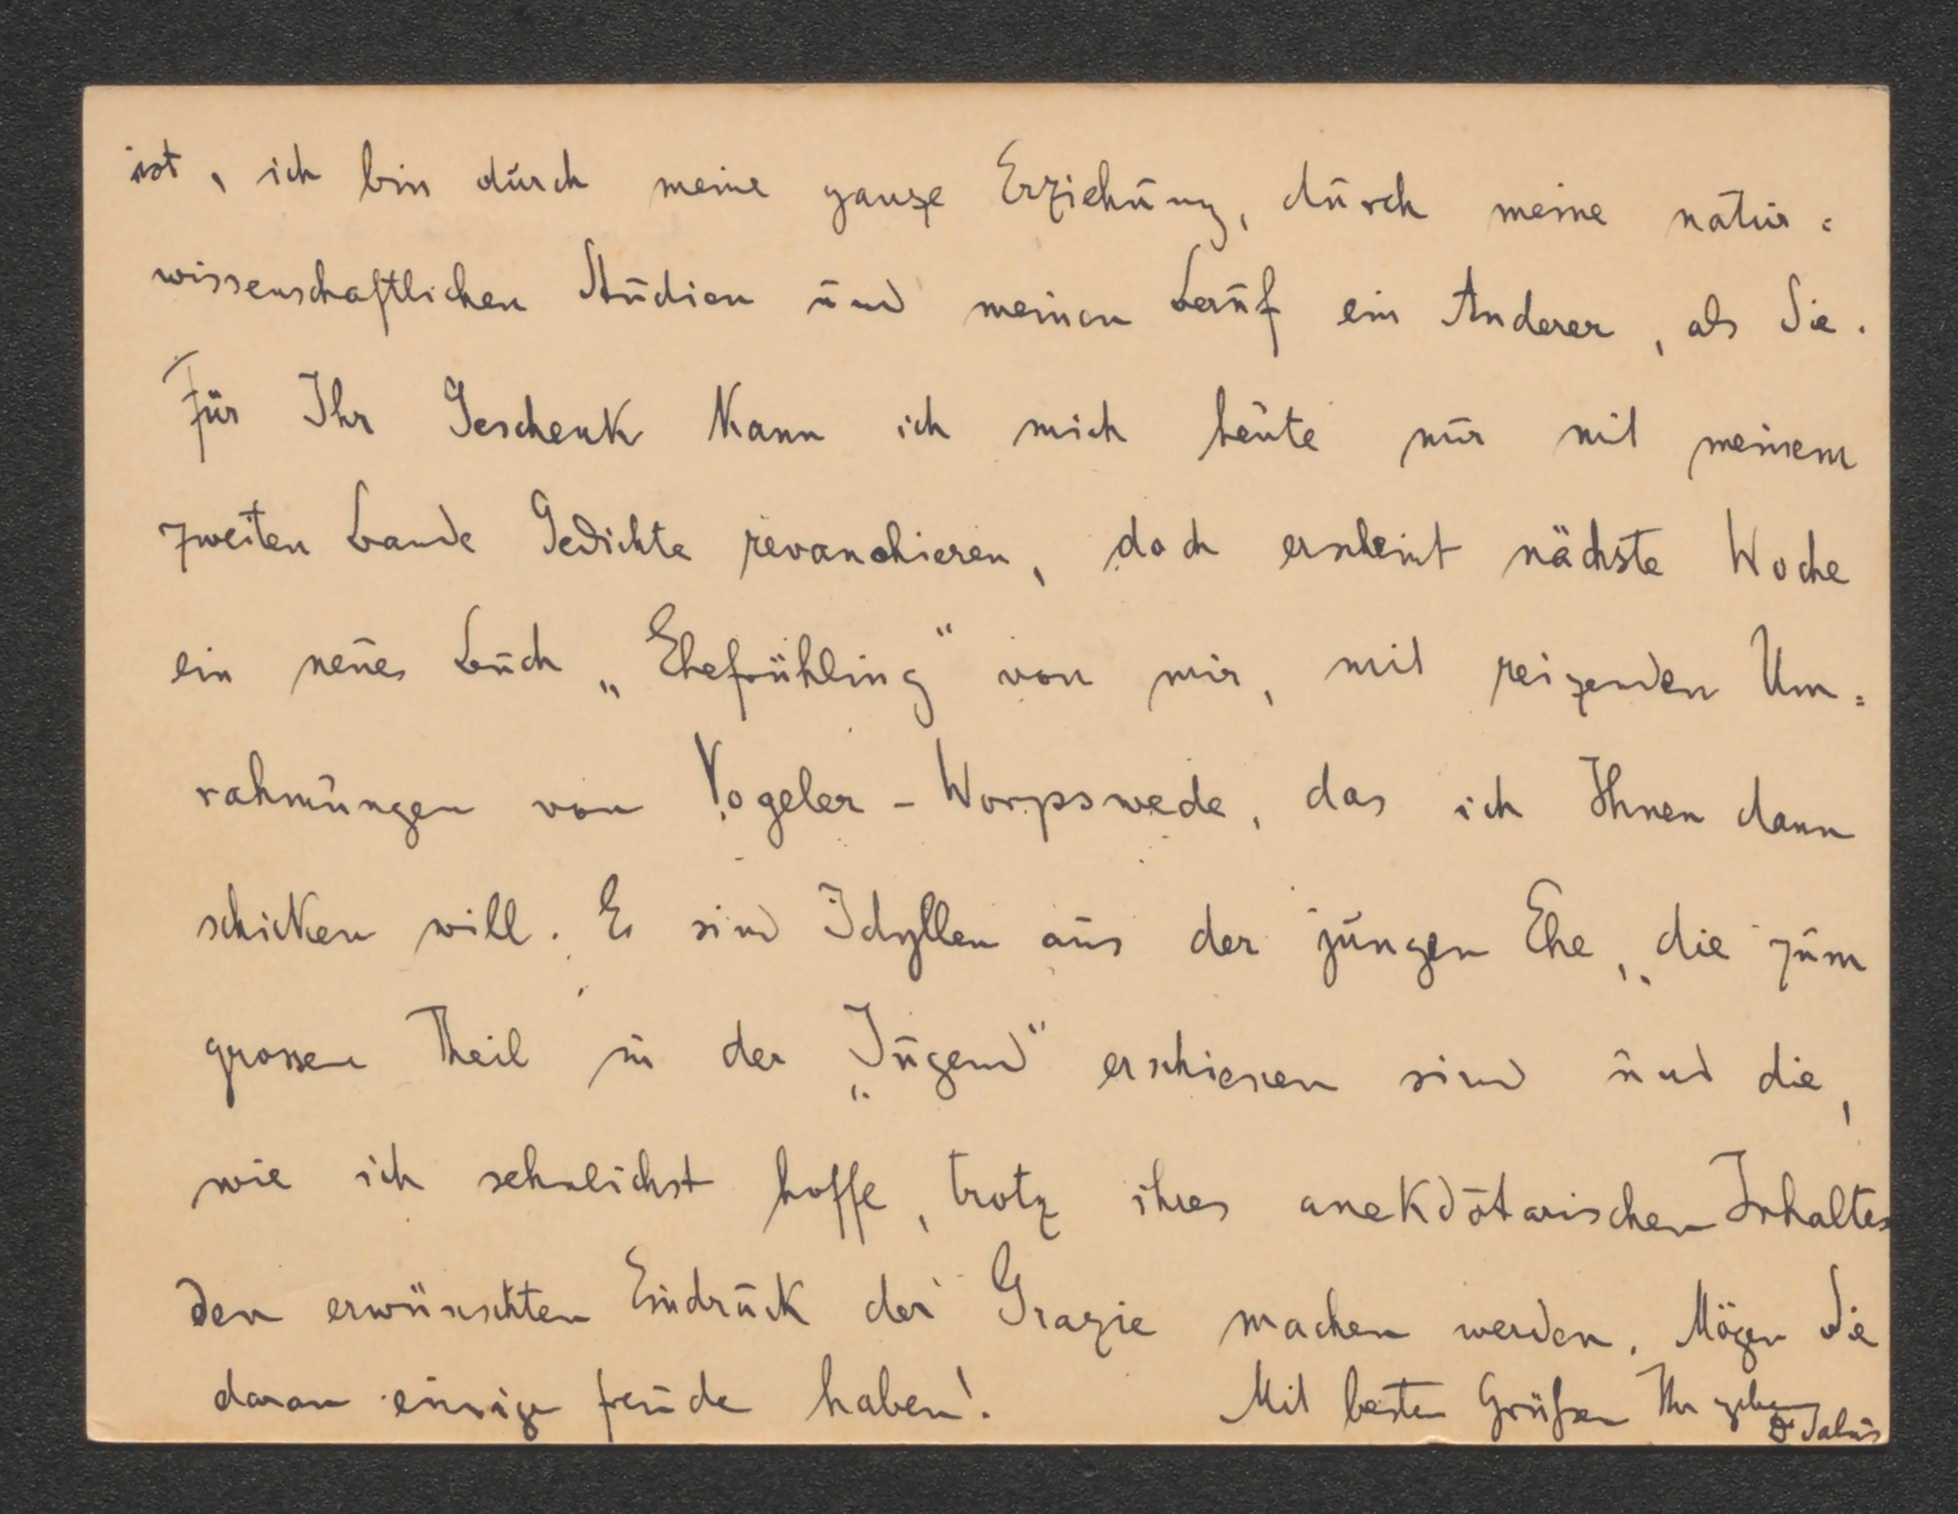 ist, ich bin durch meine ganze Erziehung, durch meine natur=
wissenschaftlichen Studien und meinen Beruf ein Anderer, als Sie.
Für Ihr Geschenk kann ich mich heute nur mit meinem
zweiten Bande Gedichte revanchieren, doch erscheint nächste Woche
ein neues Buch „Ehefrühling“ von mir, mit reizenden Um=
rahmungen von Vogeler-Worpswede, das ich Ihnen dann
schicken will. Es sind Idyllen aus der jungen Ehe, die zum
grossen Theil in der „Jugend“ erschienen sind und die,
wie ich sehnlichst hoffe, trotz ihres anekdotarischen Inhaltes
den erwünschten Eindruck der Grazie machen werden. Mögen Sie
daran einige Freude haben! Mit besten Grüßen Ihr
Dr Salus